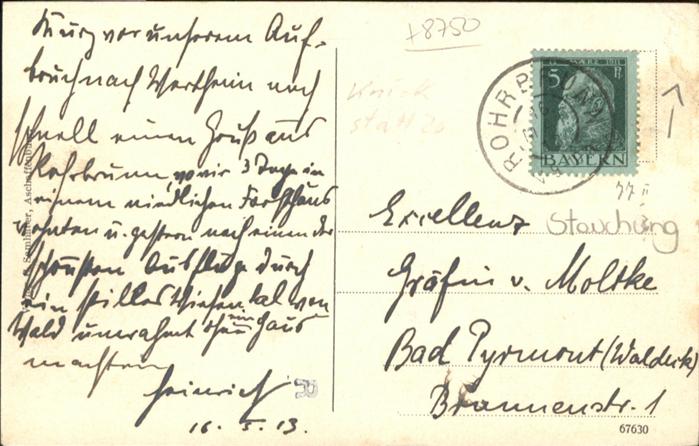 +8750
Kurz vor unserem Auf-
bruch nach Wertheim noch
schnell einen Gruß aus
Rohrbrunn, wo wir 3 Tage in
einem niedlichen Forsthaus
wohnten u. gestern nach einem der
schönsten Ausflüge durch
ein stilles Wiesental von
Wald umrahmt ohne ein Haus
machten
Heinrich
16. 5. 13.
Knick
statt 20
ROHRB
12. MÄRZ 1911
5 Pf
BAYERN
77 II
Stauchung
Excellenz
Gräfin v. Moltke
Bad Pyrmont (Waldeck)
Brunnenstr. 1
67630
Aschaffenburg